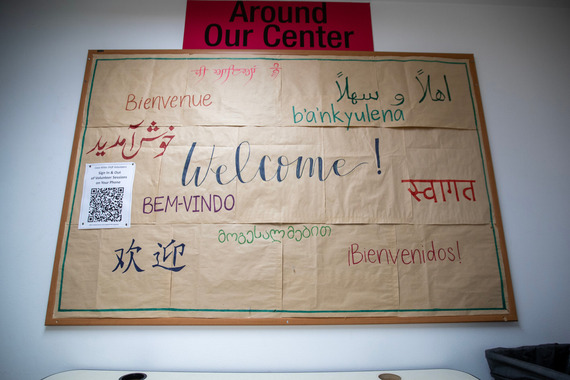 Around
Our Center
Bienvenue
اهلاً و سهلاً
b'a'nkyulena
خوش آمدید
Welcome!
Sign In & Out
of Volunteer Sessions
on Your Phone
BEM-VINDO
स्वागत
მოგესალმებით
欢迎
¡Bienvenidos!